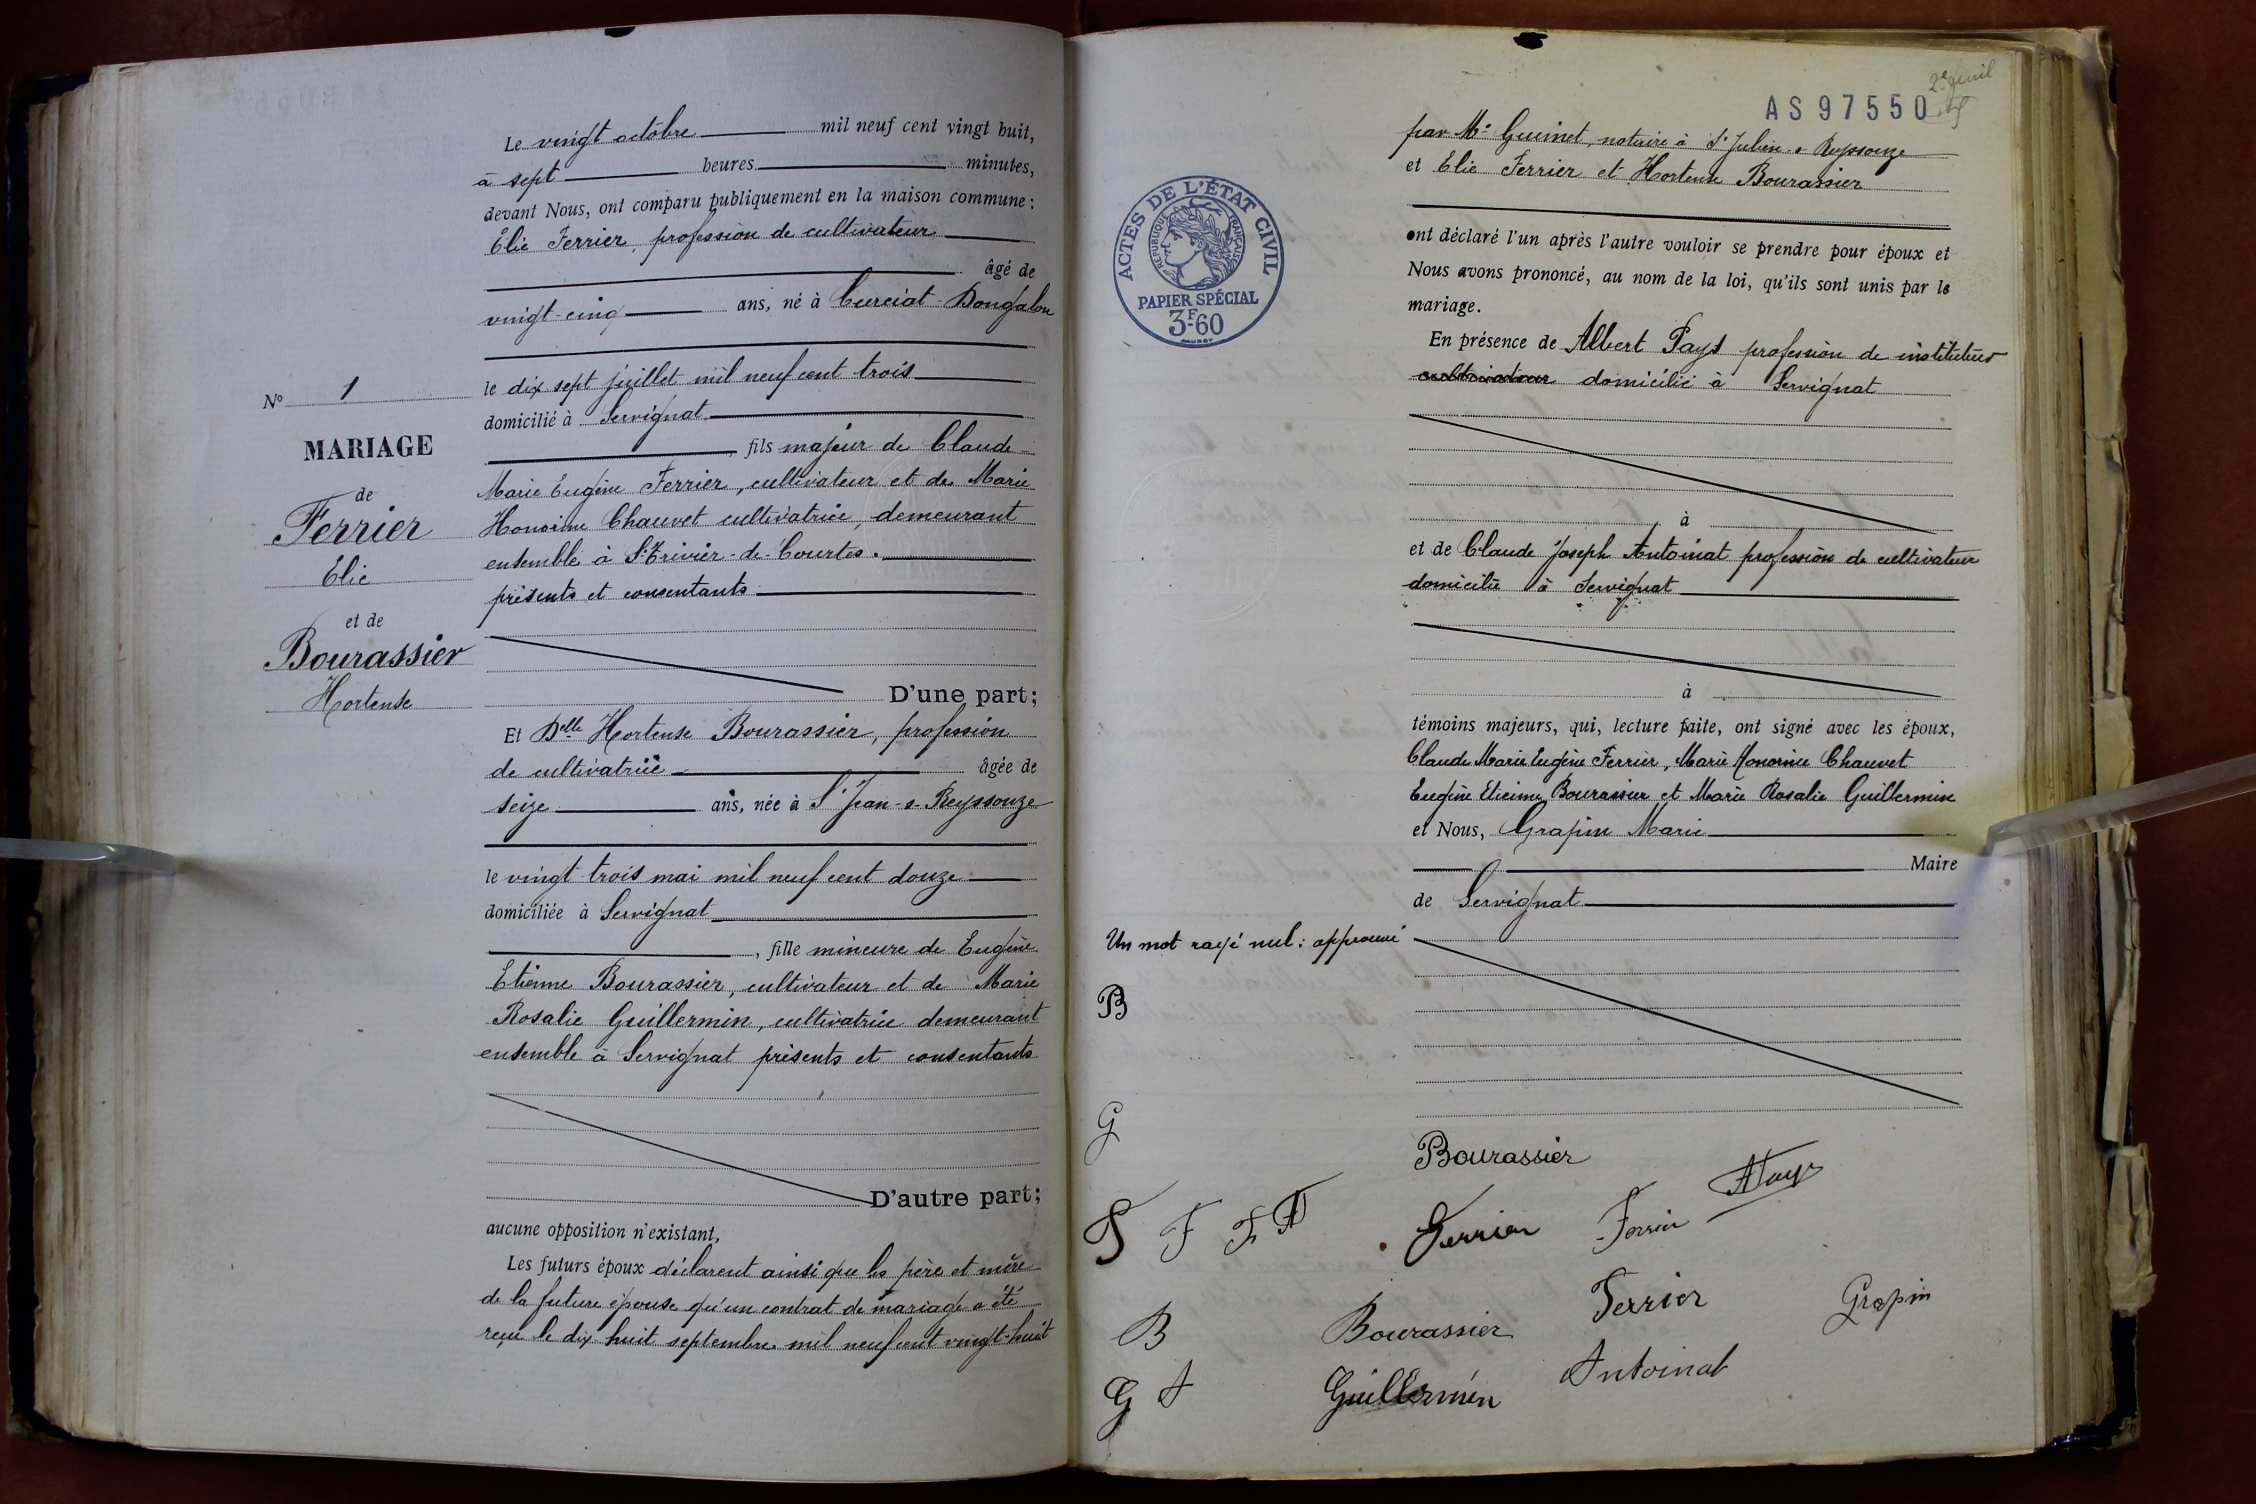 Le vingt octobre mil neuf cent vingt huit,
à sept heures minutes,
devant Nous, ont comparu publiquement en la maison commune :
Elie Ferrier, profession de cultivateur
âgé de
vingt-cinq ans, né à Curciat-Dongalon
le dix sept juillet mil neuf cent trois
domicilié à Servignat
, fils majeur de Claude
Marie Eugène Ferrier, cultivateur et de Marie
Honorine Chauvet cultivatrice, demeurant
ensemble à St Trivier-de-Courtes.
présents et consentants
D'une part ;
Et Delle Hortense Bourassier, profession
de cultivatrice âgée de
seize ans, née à St Jean-s-Reyssouze
le vingt trois mai mil neuf cent douze
domiciliée à Servignat
, fille mineure de Eugène
Etienne Bourassier, cultivateur et de Marie
Rosalie Guillermin, cultivatrice demeurant
ensemble à Servignat présents et consentants
D'autre part ;
aucune opposition n'existant,
Les futurs époux déclarent ainsi que les père et mère
de la future épouse qu'un contrat de mariage a été
reçu le dix huit septembre mil neuf cent vingt-huit
No 1
MARIAGE
de
Ferrier
Elie
et de
Bourassier
Hortense
AS97550
par Me Guinet, notaire à St Julien-s-Reyssouze
et Elie Ferrier et Hortense Bourassier
ont déclaré l'un après l'autre vouloir se prendre pour époux et
Nous avons prononcé, au nom de la loi, qu'ils sont unis par le
mariage.
En présence de Albert Pays profession de instituteur
cultivateur domicilié à Servignat
à
et de Claude Joseph Antoinat profession de cultivateur
domicilié à Servignat
à
témoins majeurs, qui, lecture faite, ont signé avec les époux,
Claude Marie Eugène Ferrier, Marie Honorine Chauvet
Eugène Etienne Bourassier et Marie Rosalie Guillermin
et Nous, Grapin Marie
Maire
de Servignat
ACTES DE L'ÉTAT CIVIL
RÉPUBLIQUE FRANÇAISE
PAPIER SPÉCIAL
3F60
Un mot rayé nul : approuvé
B
G
F F F
B
G A
Bourassier
Ferrier Ferrier
Ferrier Grapin
Bourassier
Antoinat
Guillermin